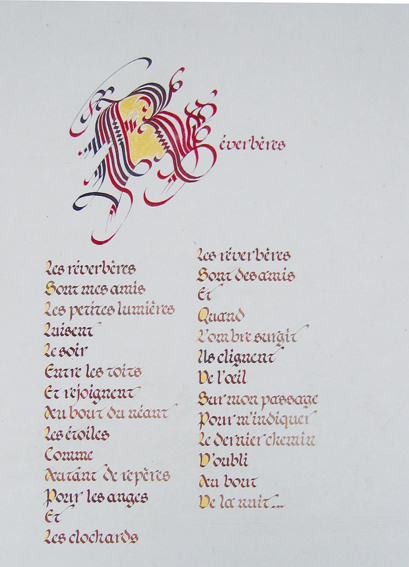 Réverbères
Les réverbères
Sont mes amis
Les petites lumières
Luisent
Le soir
Entre les toits
Et rejoignent
Au bout du néant
Les étoiles
Comme
Autant de repères
Pour les anges
Et
Les clochards
Les réverbères
Sont des amis
Et
Quand
L'ombre surgit
Ils clignent
De l'œil
Sur mon passage
Pour m'indiquer
Le dernier chemin
D'oubli
Au bout
De la nuit...